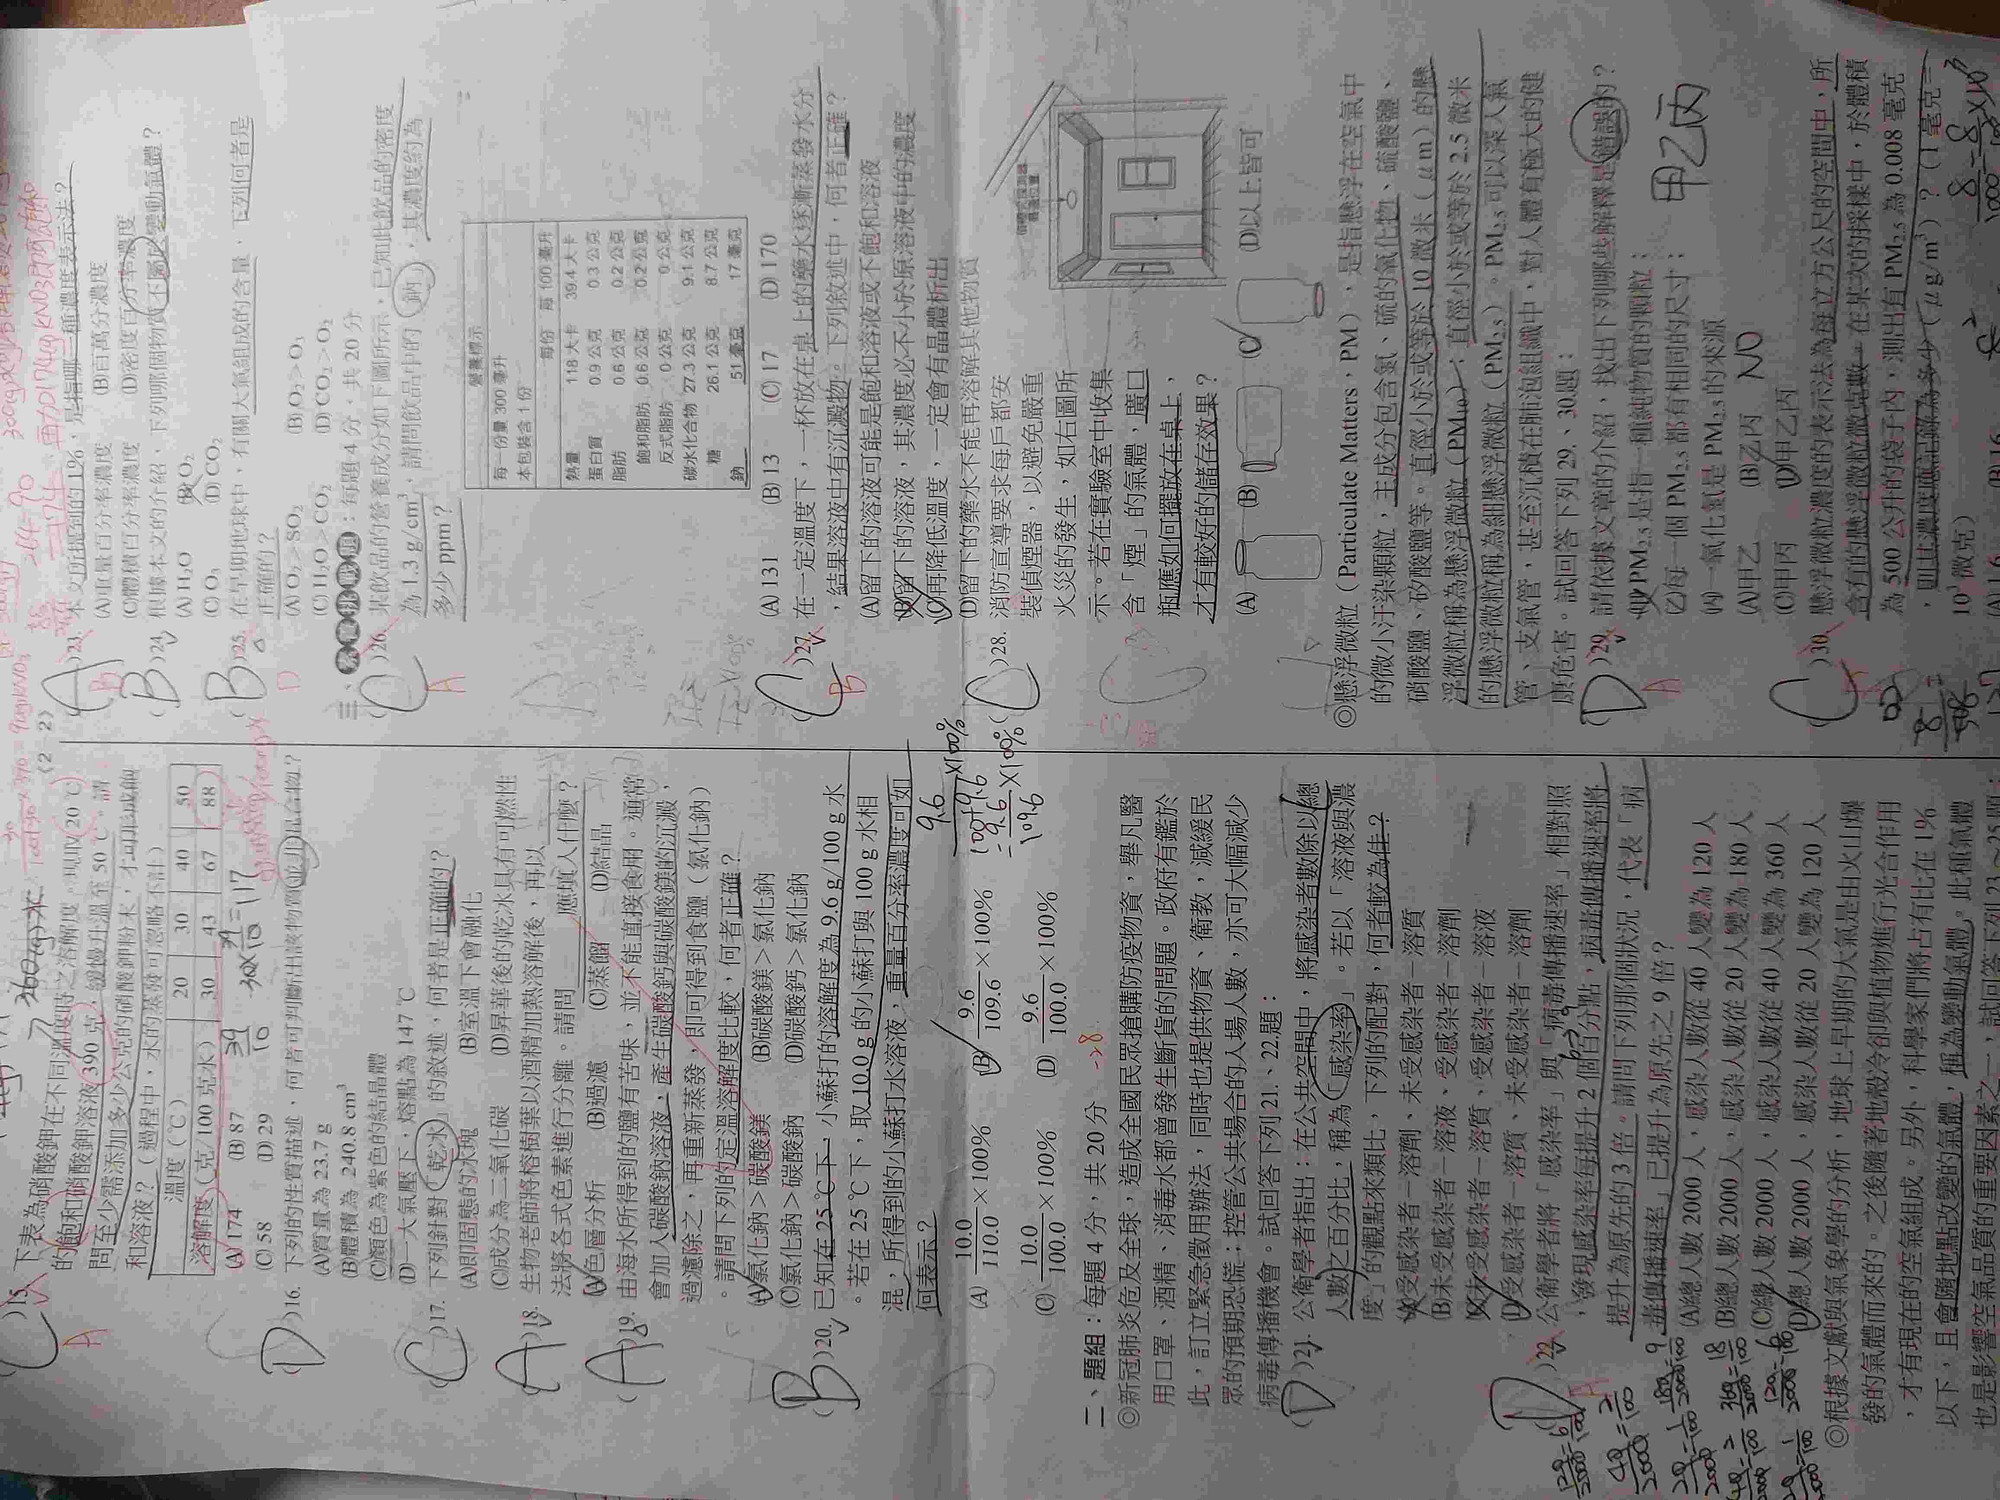 下表為硝酸鉀在不同溫度時之溶解度。現取 20℃
的飽和硝酸鉀溶液 390 克,緩慢升溫至 50℃。請
問至少需添加多少公克的硝酸鉀粉末,才可形成飽
和溶液?(過程中,水的蒸發可忽略不計)
溫度(℃) 20 30 40 50
溶解度(克/100 克水) 30 43 67 88
(A) 174 (B) 87
(C) 58 (D) 29
(D)16. 下列的性質描述,何者可判斷出該物質為混合物?
(A)質量為 23.7 g
(B)體積為 240.8 cm³
(C)顏色為紫色的結晶體
(D)一大氣壓下,熔點為 147℃
(C)17. 下列針對「乾冰」的敘述,何者是正確的?
(A)即固態的水塊 (B)室溫下會融化
(C)成分為二氧化碳 (D)昇華後的乾冰具有可燃性
(A)18. 生物老師將榕樹葉以酒精加熱溶解後,再以
法將各式色素進行分離。請問 應填入什麼?
(A)色層分析 (B)過濾 (C)蒸餾 (D)結晶
(A)19. 由海水所得到的鹽有苦味,並不能直接食用。通常
會加入碳酸鈉溶液,產生碳酸鈣與碳酸鎂的沉澱,
過濾除之,再重新蒸發,即可得到食鹽(氯化鈉)
。請問下列的定溫溶解度比較,何者正確?
(A)氯化鈉>碳酸鎂 (B)碳酸鎂>氯化鈉
(C)氯化鈉>碳酸鈉 (D)碳酸鈣>氯化鈉
(B)20. 已知在 25℃下,小蘇打的溶解度為 9.6 g/100 g 水
。若在 25℃下,取 10.0 g 的小蘇打與 100 g 水相
混,所得到的小蘇打水溶液,重量百分率濃度可如
何表示?
(A) 10.0/110.0 ×100% (B) 9.6/109.6 ×100%
(C) 10.0/100.0 ×100% (D) 9.6/100.0 ×100%
二、題組:每題 4 分,共 20 分 -8
◎新冠肺炎危及全球,造成全國民眾搶購防疫物資,舉凡醫
用口罩、酒精、消毒水都曾發生斷貨的問題。政府有鑑於
此,訂立緊急徵用辦法,同時也提供物資、衛教,減緩民
眾的預期恐慌;控管公共場合的入場人數,亦可大幅減少
病毒傳播機會。試回答下列 21.、22.題:
(D)21. 公衛學者指出:在公共空間中,將感染者數除以總
人數之百分比,稱為「感染率」。若以「溶液與濃
度」的觀點來類比,下列的配對,何者較為佳?
(A)受感染者-溶劑、未受感染者-溶質
(B)未受感染者-溶液、受感染者-溶劑
(C)未受感染者-溶質、受感染者-溶液
(D)受感染者-溶質、未受感染者-溶劑
(D)22. 公衛學者將「感染率」與「病毒傳播速率」相對照
,發現感染率每提升 2 個百分點,病毒傳播速率將
提升為原先的 3 倍。請問下列那個狀況,代表「病
毒傳播速率」已提升為原先之 9 倍?
(A)總人數 2000 人,感染人數從 40 人變為 120 人
(B)總人數 2000 人,感染人數從 20 人變為 180 人
(C)總人數 2000 人,感染人數從 40 人變為 360 人
(D)總人數 2000 人,感染人數從 20 人變為 120 人
◎根據文獻與氣象學的分析,地球上早期的大氣是由火山爆
發的氣體而來的。之後隨著地殼冷卻與植物進行光合作用
,才有現在的空氣組成。另外,科學家們將占有比在 1%
以下,且會隨地點改變的氣體,稱為變動氣體。此種氣體
也是影響空氣品質的重要因素之一,試回答下列 23.~25.題:
(A)23. 本文所提到的 1%,是指哪一種濃度表示法?
(A)重量百分率濃度 (B)百萬分濃度
(C)體積百分率濃度 (D)密度百分率濃度
(B)24. 根據本文的介紹,下列哪個物質不屬於變動氣體?
(A) H₂O (B) O₂
(C) O₃ (D) CO₂
(B)25. 在早期地球中,有關大氣組成的含量,下列何者是
正確的?
(A) O₂>SO₂ (B) O₂>O₃
(C) H₂O>CO₂ (D) CO₂>O₂
:每題 4 分,共 20 分
(C)26. 某飲品的營養成分如下圖所示,已知此飲品的密度
為 1.3 g/cm³,請問飲品中的「鈉」,其濃度約為
多少 ppm?
營養標示
每一份量 300 毫升
本包裝含 1 份
每份 每 100 毫升
熱量 118 大卡 39.4 大卡
蛋白質 0.9 公克 0.3 公克
脂肪 0.6 公克 0.2 公克
飽和脂肪 0.6 公克 0.2 公克
反式脂肪 0 公克 0 公克
碳水化合物 27.3 公克 9.1 公克
糖 26.1 公克 8.7 公克
鈉 51 毫克 17 毫克
(A) 131 (B) 13 (C) 17 (D) 170
(C)27. 在一定溫度下,一杯放在桌上的藥水逐漸蒸發水分
,結果溶液中有沉澱物。下列敘述中,何者正確?
(A)留下的溶液可能是飽和溶液或不飽和溶液
(B)留下的溶液,其濃度必不小於原溶液中的濃度
(C)再降低溫度,一定會有晶體析出
(D)留下的藥水不能再溶解其他物質
(C)28. 消防宣導要求每戶都安
裝偵煙器,以避免嚴重
火災的發生,如右圖所
示。若在實驗室中收集
含「煙」的氣體,廣口
瓶應如何擺放在桌上,
才有較好的儲存效果?
(A) (B) (C) (D)以上皆可
◎懸浮微粒(Particulate Matters,PM),是指懸浮在空氣中
的微小汙染顆粒,主成分包含氮、硫的氧化物、硫酸鹽、
硝酸鹽、矽酸鹽等。直徑小於或等於 10 微米(μm)的懸
浮微粒稱為懸浮微粒(PM₁₀);直徑小於或等於 2.5 微米
的懸浮微粒稱為細懸浮微粒(PM₂.₅)。PM₂.₅ 可以深入氣
管、支氣管,甚至沉積在肺泡組織中,對人體有極大的健
康危害。試回答下列 29.、30.題:
(D)29. 請依據文章的介紹,找出下列哪些解釋是錯誤的?
(甲)PM₂.₅ 是指一種純物質的顆粒;
(乙)每一個 PM₂.₅ 都有相同的尺寸;
(丙)一氧化氮是 PM₂.₅ 的來源
甲乙丙
(A)甲乙 (B)乙丙 NO
(C)甲丙 (D)甲乙丙
(C)30. 懸浮微粒濃度的表示法為每立方公尺的空間中,所
含有的懸浮微粒微克數。在某次的採樣中,於體積
為 500 公升的袋子內,測出有 PM₂.₅ 為 0.008 毫克
,則其濃度應記錄為多少(μg/m³)?(1 毫克=
10³ 微克)
(A) 1.6 (B) 16